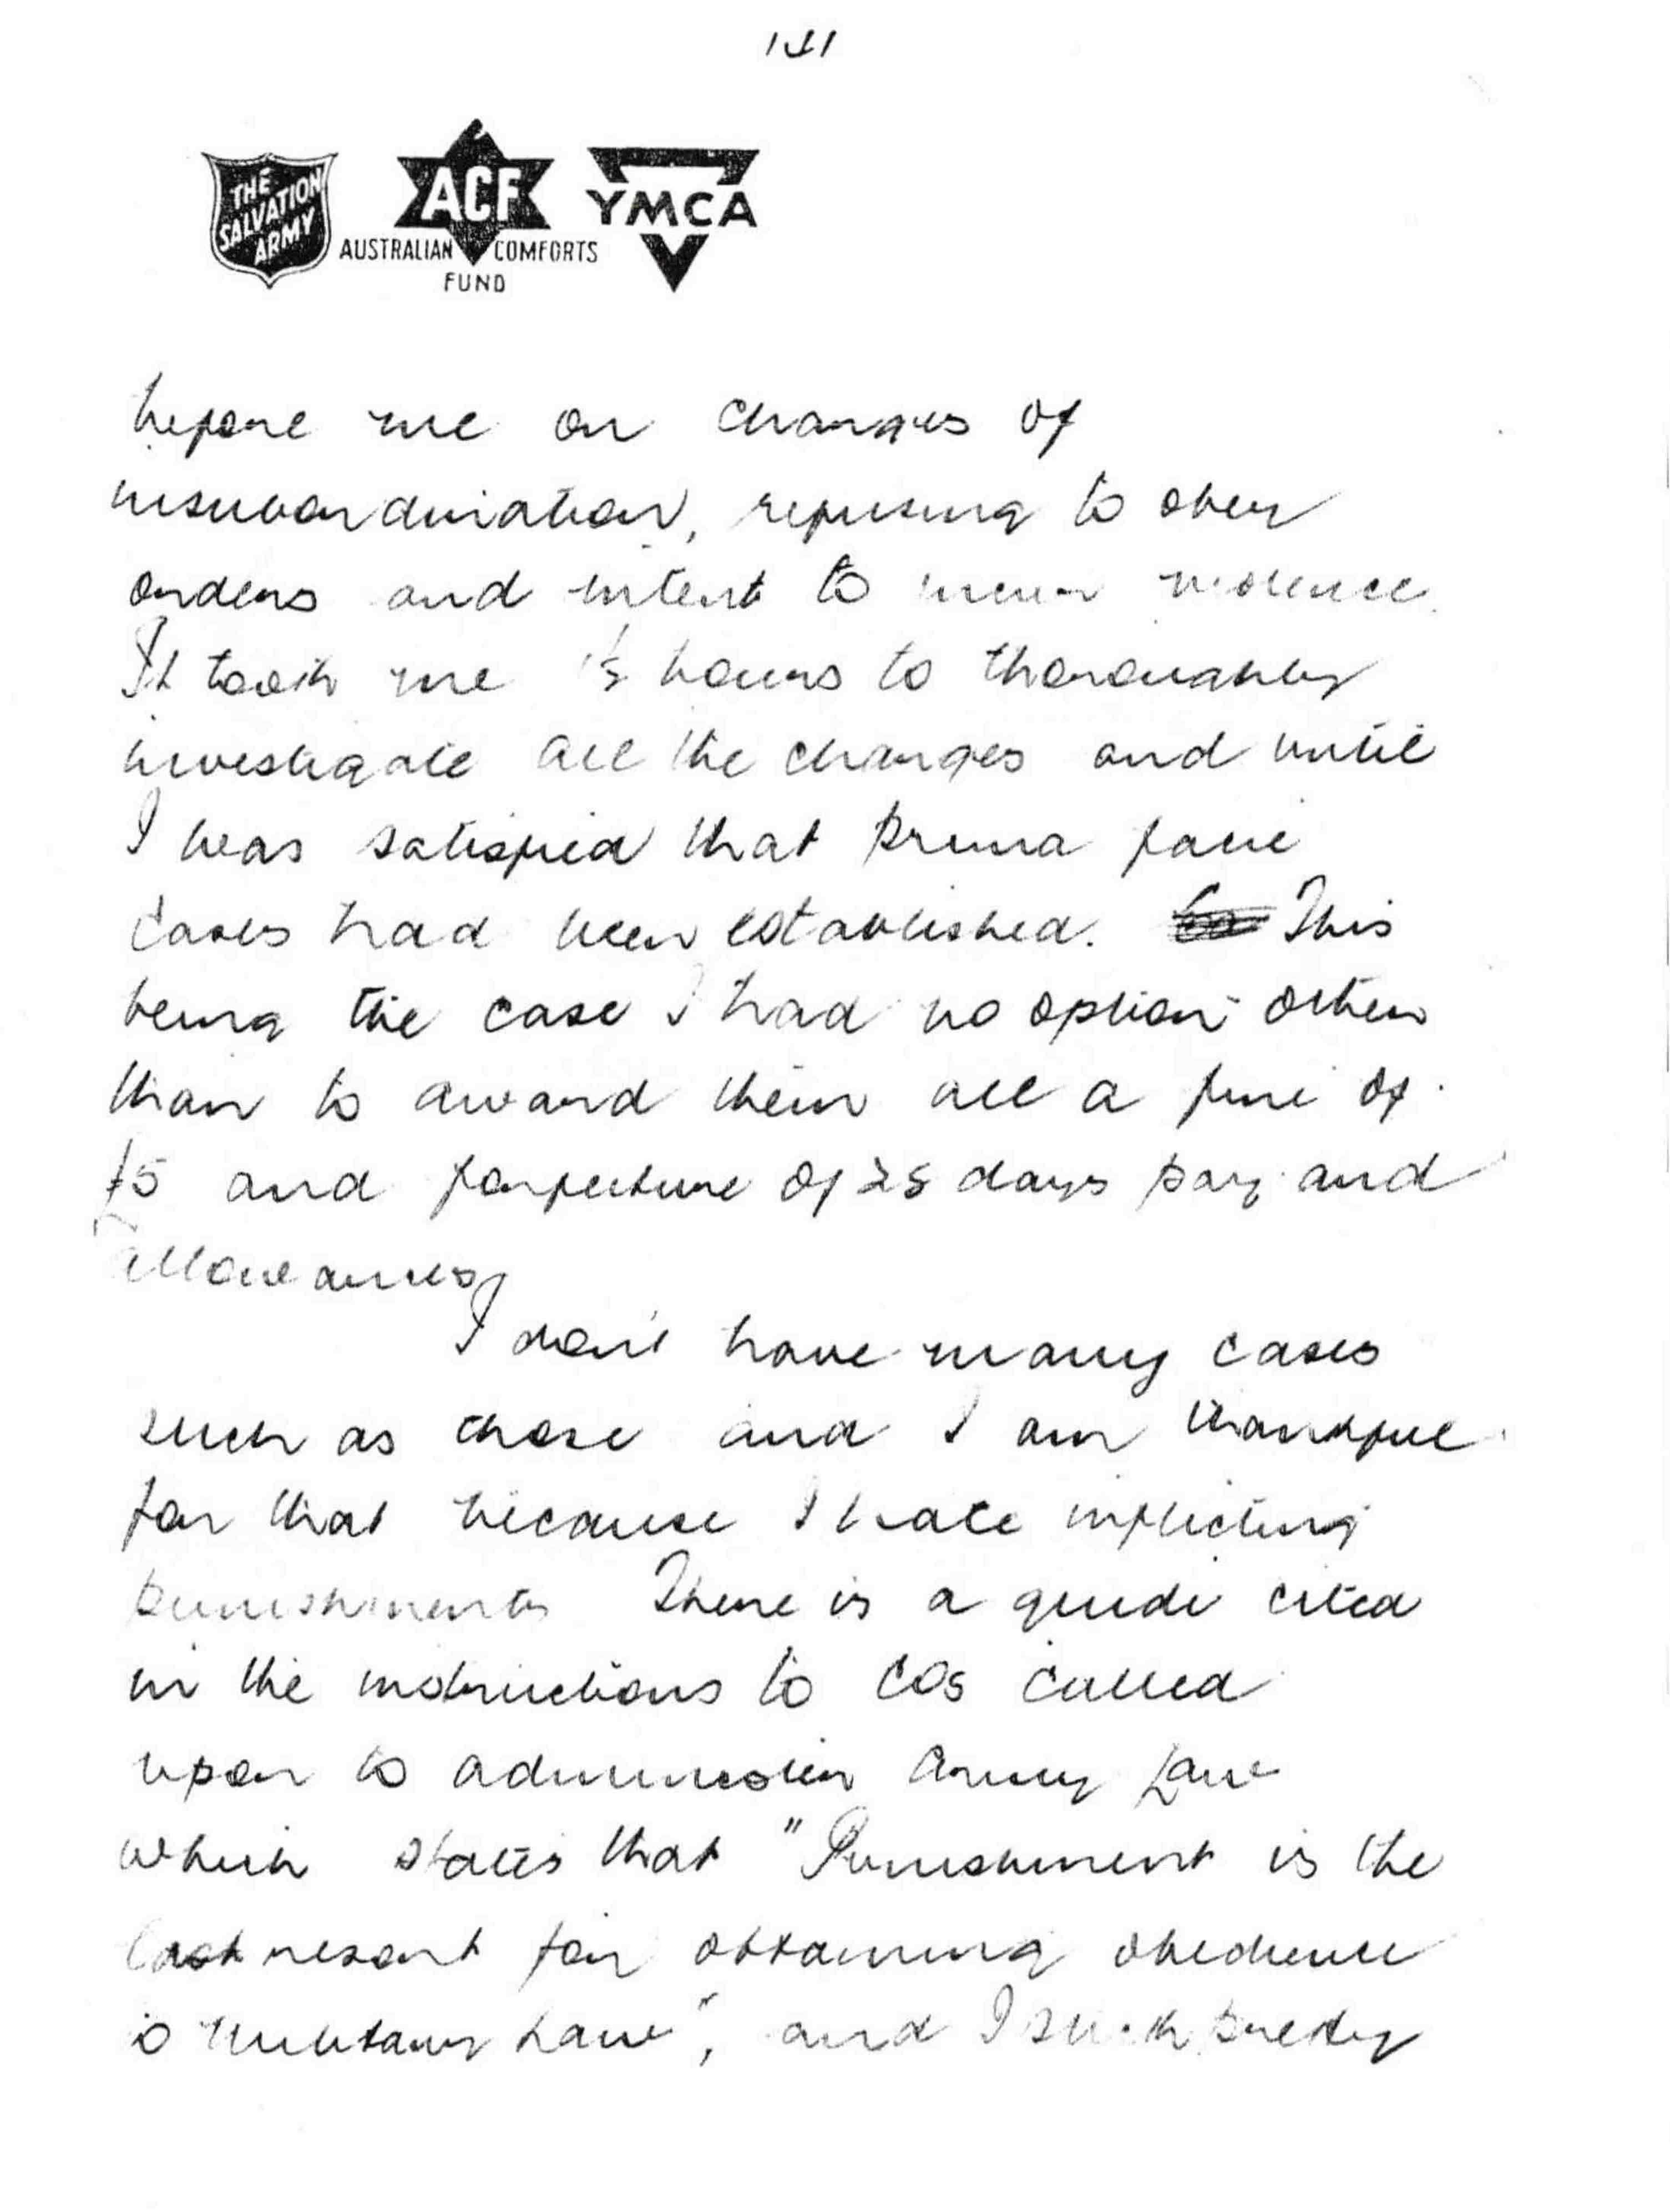 THE
SALVATION
ARMY
ACF
AUSTRALIAN COMFORTS
FUND
YMCA
before me on charges of
insubordination, refusing to obey
orders and intent to incur violence.
It took me hours to thoroughly
investigate all the charges and until
I was satisfied that prima facie
cases had been established. This
being the case I had no option other
than to award them all a fine of
£5 and forfeiture of 28 days pay and
allowances,
I don't have many cases
such as those and I am thankful
for that because I hate inflicting
punishments There is a guide cited
in the instructions to COs called
upon to administer Army Law
which states that "Punishment is the
last resort for obtaining obedience
to Military Law", and I stick pretty